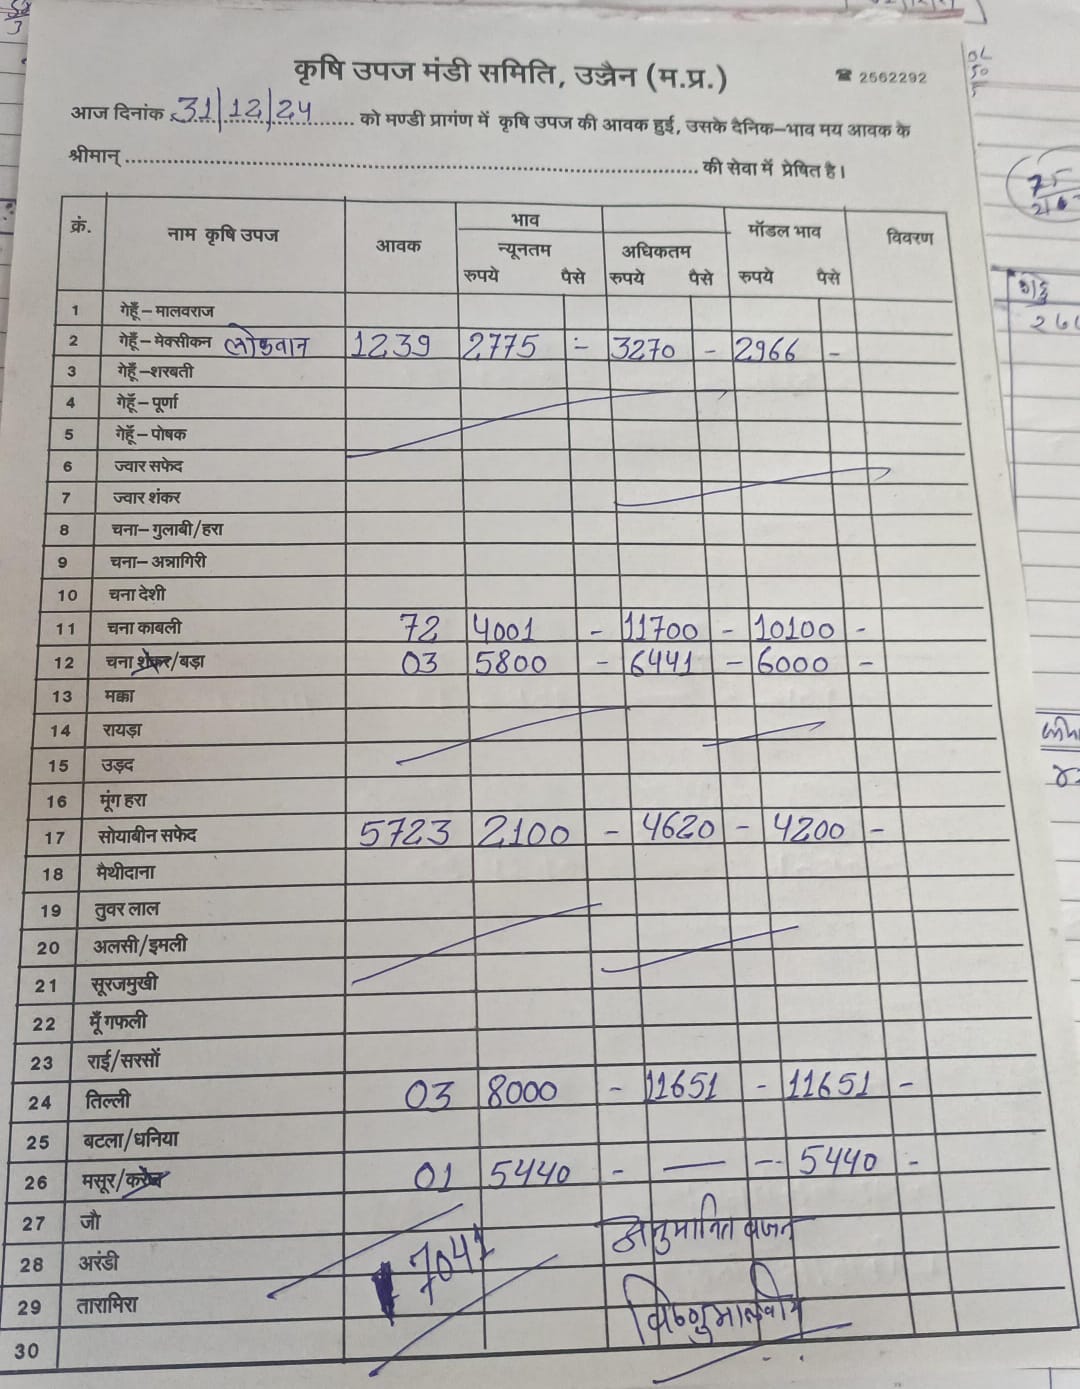 कृषि उपज मंडी समिति, उज्जैन (म.प्र.) ☎ 2562292
आज दिनांक 31/12/24 को मण्डी प्रागंण में कृषि उपज की आवक हुई, उसके दैनिक–भाव मय आवक के
श्रीमान् की सेवा में प्रेषित है।
क्रं. नाम कृषि उपज आवक भाव मॉडल भाव विवरण
न्यूनतम अधिकतम
रुपये पैसे रुपये पैसे रुपये पैसे
1 गेहूँ–मालवराज
2 गेहूँ–मेक्सीकन लोकवान 1239 2775 - 3270 - 2966 -
3 गेहूँ–शरबती
4 गेहूँ–पूर्णा
5 गेहूँ–पोषक
6 ज्वार सफेद
7 ज्वार शंकर
8 चना–गुलाबी/हरा
9 चना–अन्नागिरी
10 चना देशी
11 चना काबली 72 4001 - 11700 - 10100 -
12 चना शंकर/बड़ा 03 5800 - 6441 - 6000 -
13 मक्का
14 रायड़ा
15 उड़द
16 मूंग हरा
17 सोयाबीन सफेद 5723 2100 - 4620 - 4200 -
18 मैथीदाना
19 तुवर लाल
20 अलसी/इमली
21 सूरजमुखी
22 मूँगफली
23 राई/सरसों
24 तिल्ली 03 8000 - 11651 - 11651 -
25 बटला/धनिया
26 मसूर/ 01 5440 - — - 5440 -
27 जौ अनुमानित वजन
28 अरंडी 7041
29 तारामिरा विष्णु मालवीय
30